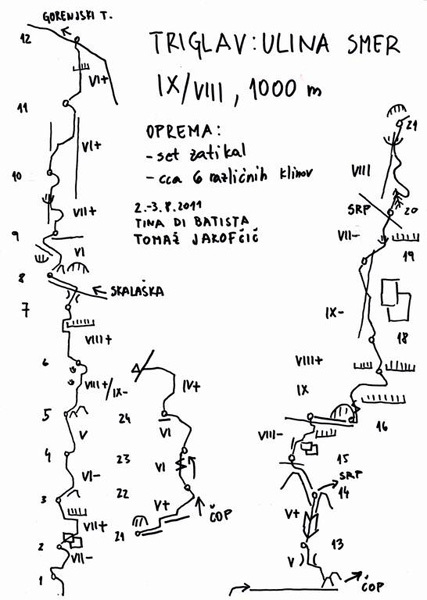 GORENJSKI T.
12
TRIGLAV: ULINA SMER
IX/VIII, 1000 m
OPREMA:
- set zatikal
- cca 6 različnih klinov
2.-3.8.2011
TINA DI BATISTA
TOMAŽ JAKOFČIČ
VI+
11
VI+
10
VII+
9
VI
8
SKALAŠKA
7
VIII+
6
VIII+/IX-
5
V
4
VI-
3
VII+
2
VII-
1
IV+
24
VI
23
VI
22
V+
ČOP
21
21
VIII
SRP
20
VII-
19
IX-
18
VIII+
IX
16
VIII-
15
SRP
14
V+
13
V
ČOP